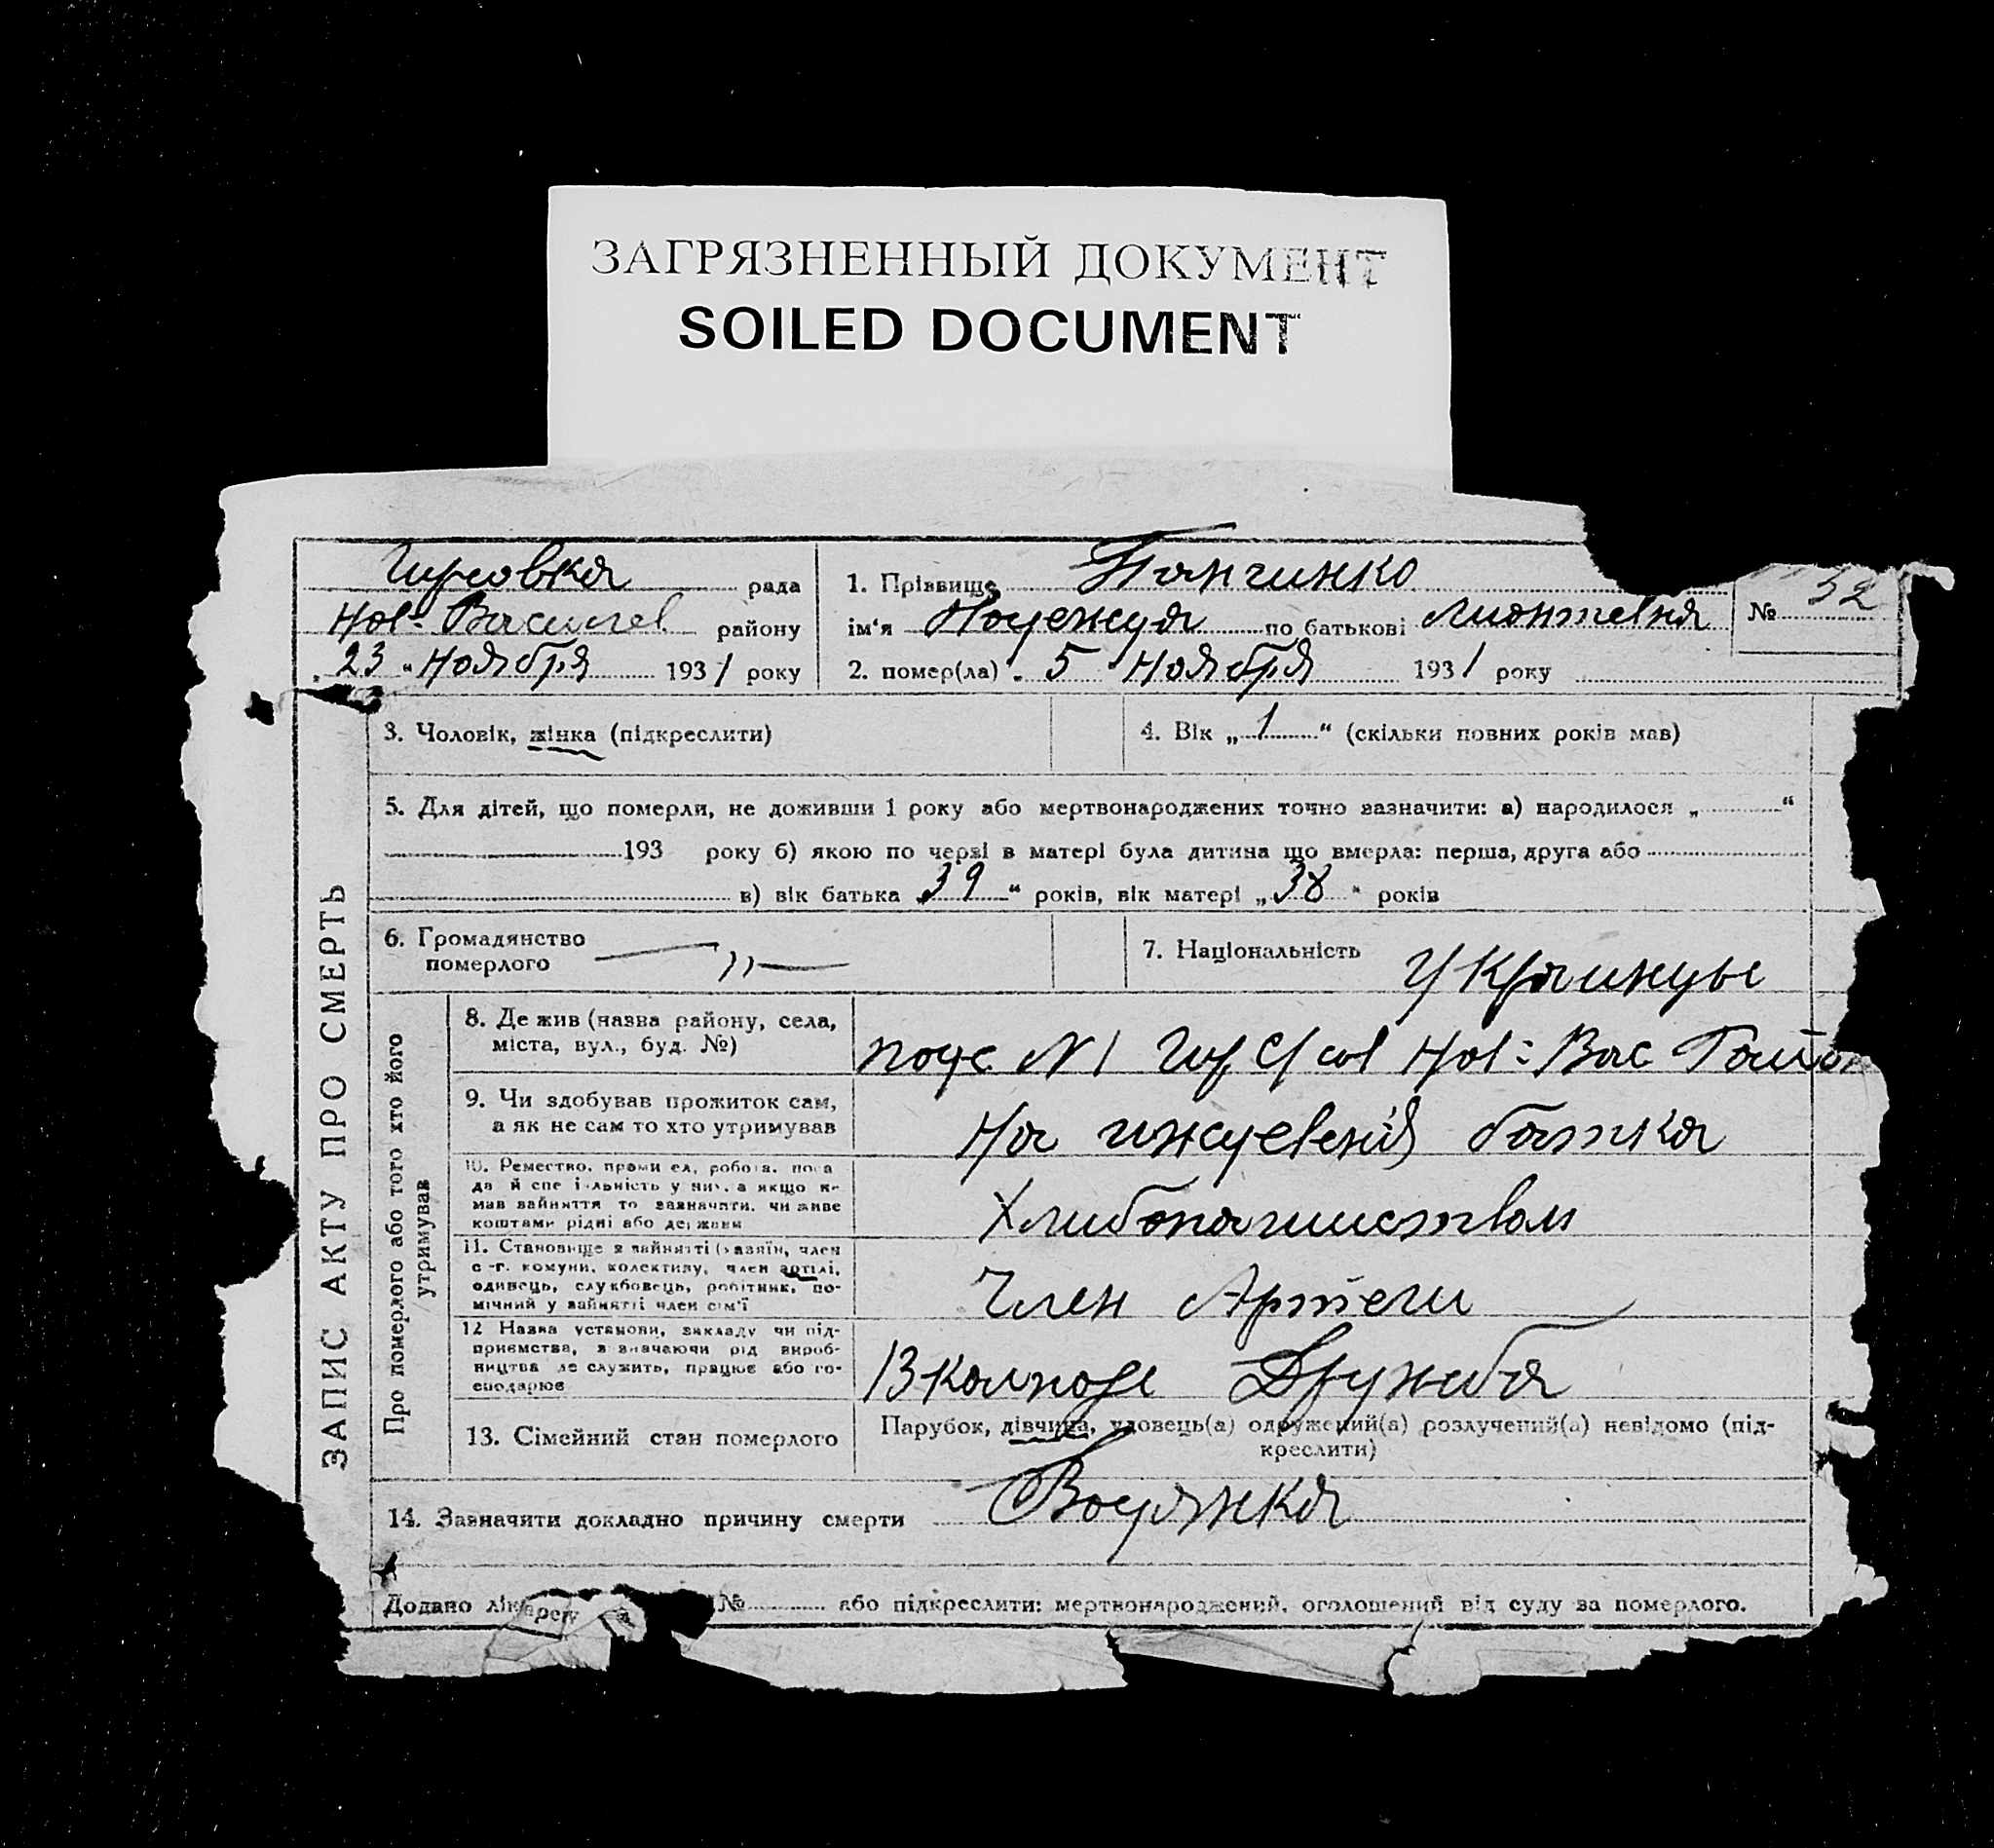 ЗАГРЯЗНЕННЫЙ ДОКУМЕНТ
SOILED DOCUMENT
рада
Нов- Василев району
„23“ Ноября 1931 року
1. Прізвище
ім‘я по батькові
2. помер(ла) „5“ Ноября 1931 року
№ 32
ЗАПИС АКТУ ПРО СМЕРТЬ
3. Чоловік, жінка (підкреслити)
4. Вік „1“ (скільки повних років мав)
5. Для дітей, що померли, не доживши 1 року або мертвонароджених точно зазначити: а) народилося „ “
193 року б) якою по черзі в матері була дитина що вмерла: перша, друга або
в) вік батька „39“ років, вік матері „38“ років
6. Громадянство
померлого —〃—
7. Національність Украинцы
Про померлого або того хто його
утримував
8. Де жив (назва району, села,
міста, вул., буд. №)
N1 Нов: Вас
9. Чи здобував прожиток сам,
а як не сам то хто утримував
На батька
10. Ремество, промисел, робота, поса
да й спеціяльність у них, а якщо не
мав зайняття то зазначити, чи живе
коштами рідні або держави
11. Становище в зайнятті (хазяїн, член
с.-г. комуни, колективу, член артілі,
одинець, службовець, робітник, по-
мічний у зайнятті член сім'ї
Член Артели
12 Назва установи, закладу чи під-
приємства, зазначаючи рід вироб-
ництва де служить, працює або го-
сподарює
Дружба
13. Сімейний стан померлого
Парубок, дівчина, удовець(а) одружений(а) розлучений(а) невідомо (під-
креслити)
14. Зазначити докладно причину смерти Водянка
Додано лікарем №
або підкреслити: мертвонароджений, оголошений від суду за померлого.